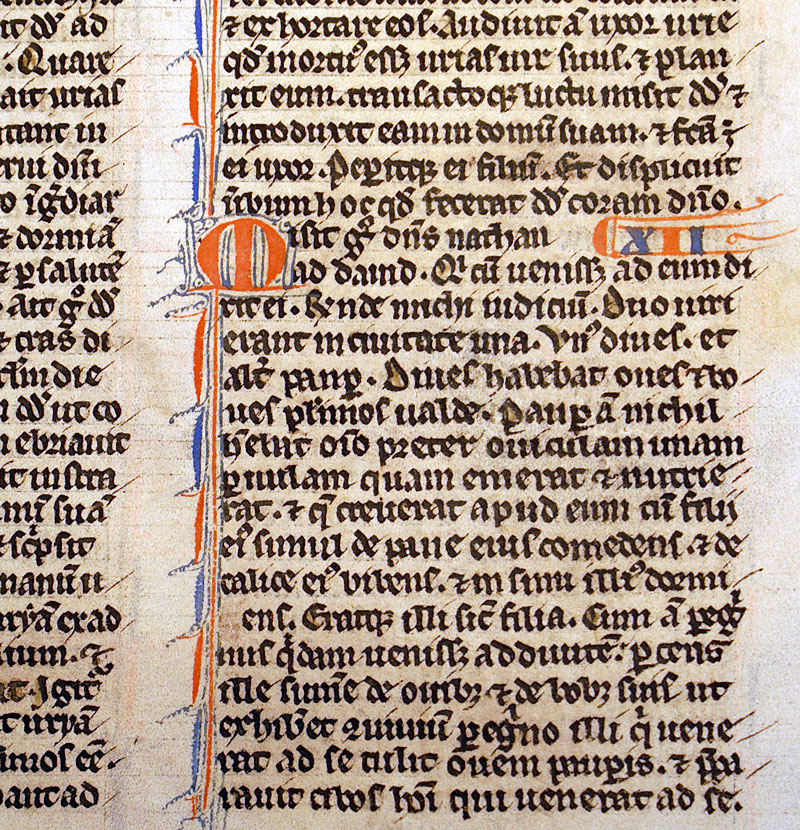 it dd̕ ad
. Quare
ait urias
itant in
erui dn̄i
o īgr̄diar
⁊ dormiā
⁊ ꝑ salutē
. Ait gͦ dd̕
⁊ cras di
rl̄m die
dd̕ ut co
n ebriauit
it in stra
mī suā
⁊ sc̄psit
manū u
uryā ex ad
lium. ⁊
at. Igit᷑
t uryā
imos eē.
bant ad
⁊ exhortare eos. Audiuit ā uxor urie
qd̕ mortuꝰ essꝫ urias uir suus. ⁊ plan
xit eum. transactoqꝫ luctu misit dd̕ ⁊
introduxit eam in domū suam. ⁊ fc̄a ē
ei uxor. Peperitqꝫ ei filiū. Et displicuit
ūbum hoc qd̕ fecerat dd̕ coram dn̄o.
Misit gͦ dn̄s nathan XII
ad dauid. Qͥ cū uenissꝫ ad eum di
xit ei. Rn̄de michi iudiciū. Duo uiri
erant in ciuitate una. Vnꝰ diues. et
alt̄ pauꝑ. Diues habebat oues ⁊ bo
ues pl̄imos ualde. Pauꝑ ā nichil
hēbat oīo preter ouiculam unam
ꝑuulam quam emerat ⁊ nutrie
rat. ⁊ q̄ creuerat apud eum cū filiis
eiꝰ simul de pane eius comedens. ⁊ de
calice eiꝰ bibens. ⁊ in sinu illiꝰ dormi
ens. Eratqꝫ illi sic̄ filia. Cum ā pegͥ
nus qͥdam uenissꝫ ad diuitē. ꝑcens
ille sumē de ouibꝫ ⁊ de bobꝫ suis ut
exhib̄et ꝯuiuiū ꝑegͥno illi qͥ uene
rat ad se tulit ouem pauꝑis. ⁊ p̄pa
rauit cibos hoī qui uenerat ad se.